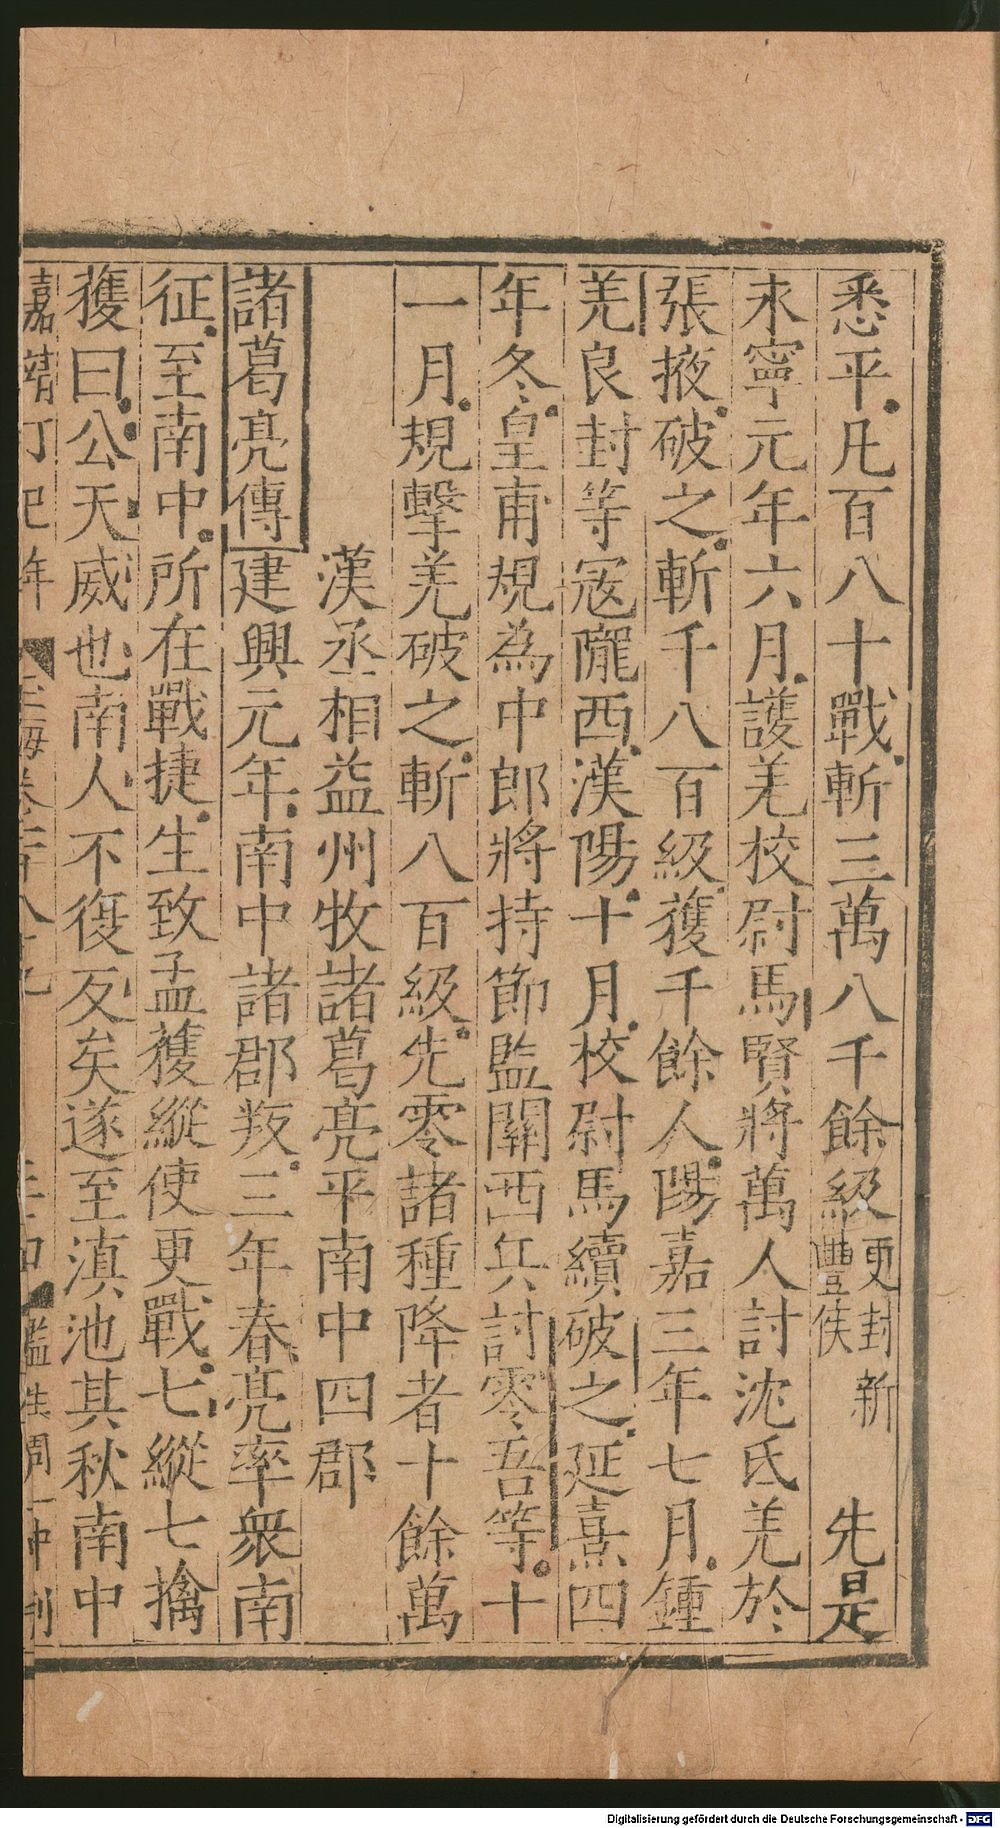 悉平凡百八十戰斬三萬八千餘級更封新豐侯先是
永寧元年六月護羌校尉馬賢將萬人討沈氐羌於
張掖破之斬千八百級獲千餘人陽嘉三年七月鍾
羌良封等寇隴西漢陽十月校尉馬續破之延熹四
年冬皇甫規為中郎將持節監關西兵討零吾等十
一月規擊羌破之斬八百級先零諸種降者十餘萬
漢丞相益州牧諸葛亮平南中四郡
諸葛亮傳建興元年南中諸郡叛三年春亮率衆南
征至南中所在戰捷生致孟獲縱使更戰七縱七擒
獲曰公天威也南人不復反矣遂至滇池其秋南中
嘉靖丁巳年 玉海卷百八十九 監生周一冲刊
Digitalisierung gefördert durch die Deutsche Forschungsgemeinschaft - DFG